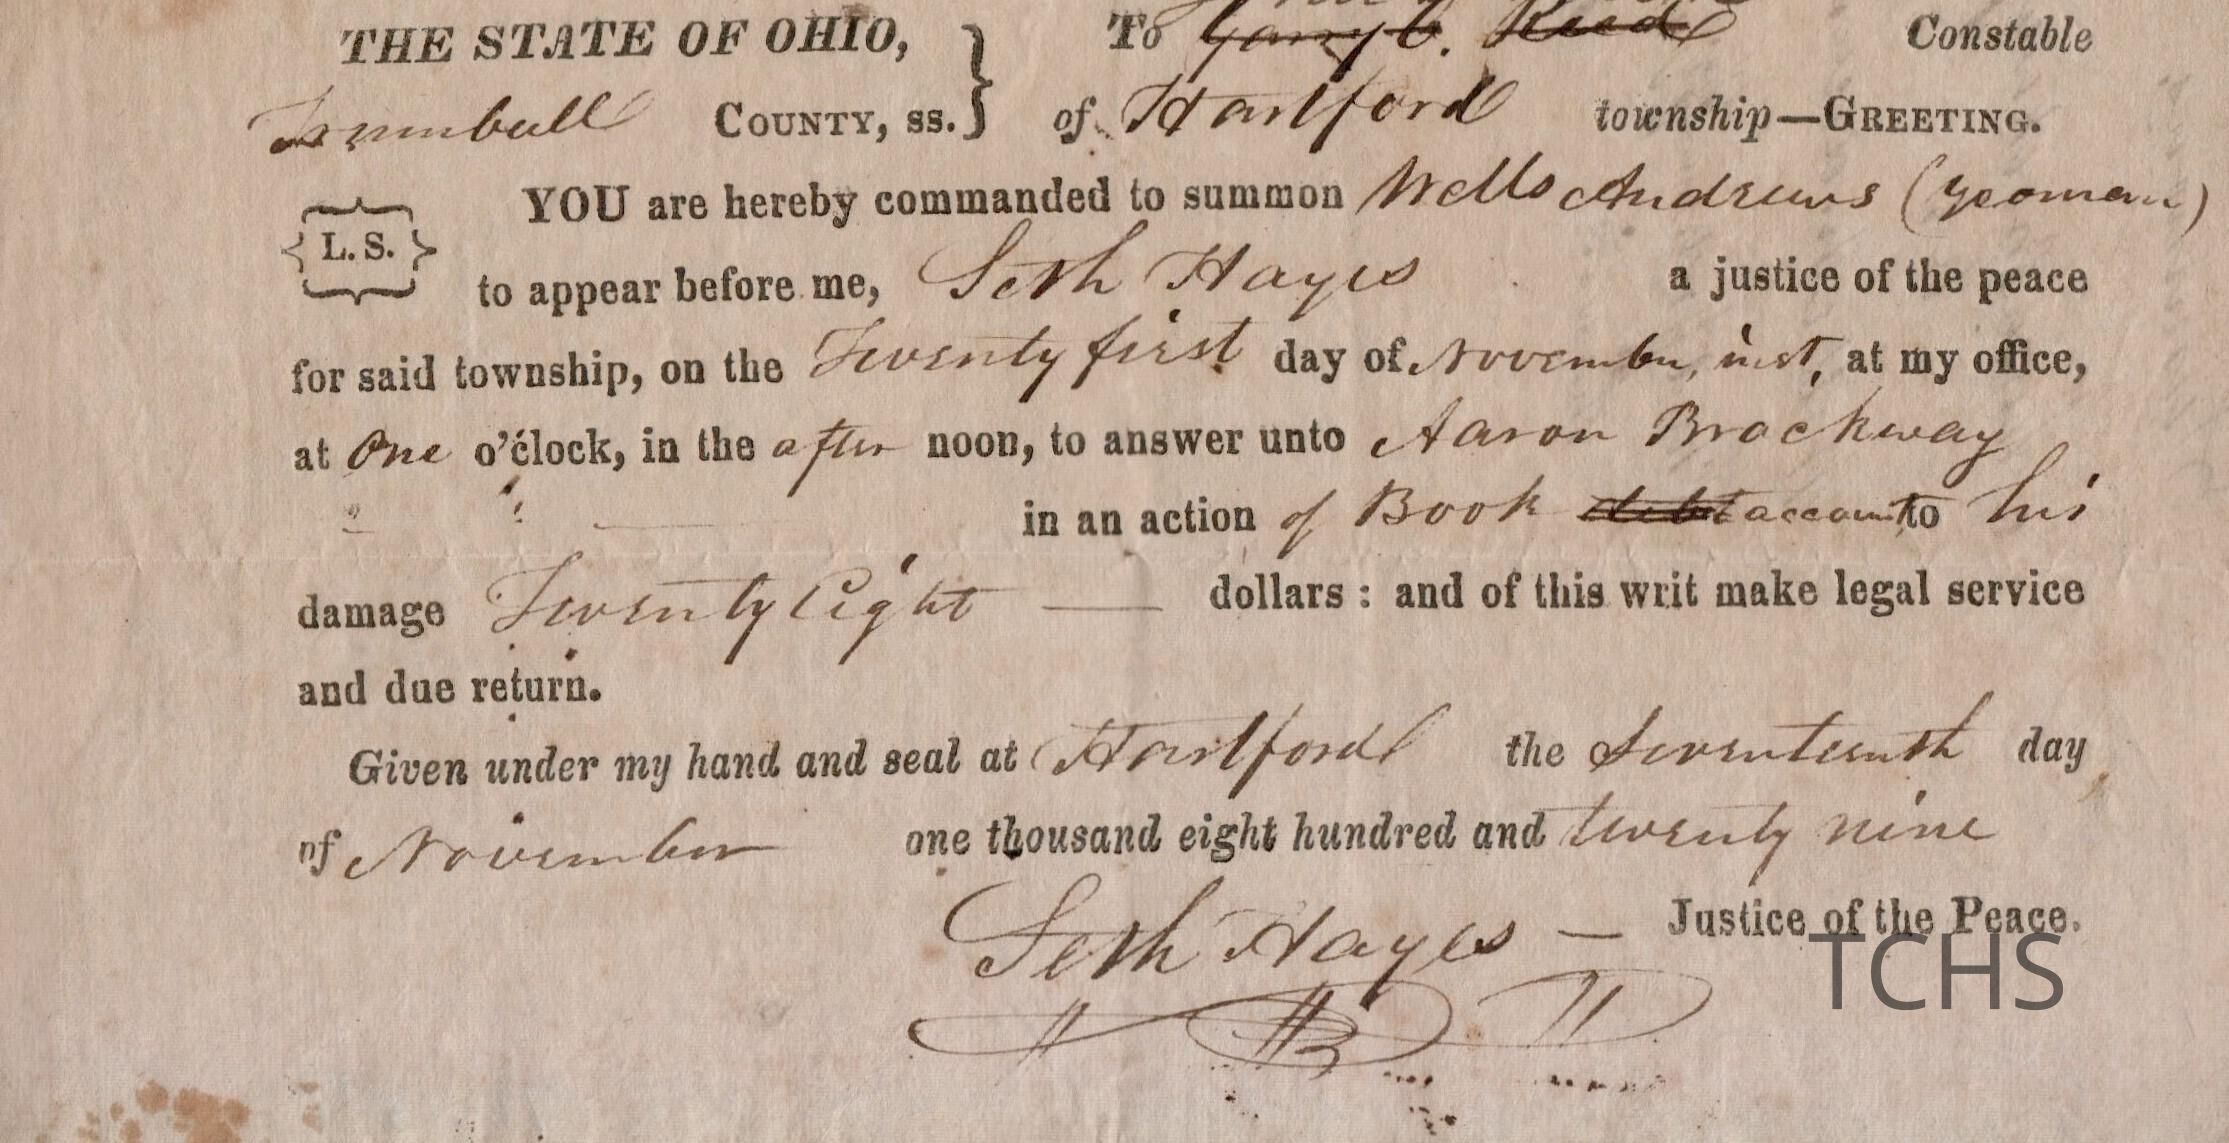 THE STATE OF OHIO, } To Garry C. Reed Constable
Trumbull COUNTY, ss. } of Hartford township—GREETING.
YOU are hereby commanded to summon Wells Andrews (yeoman)
{L. S.}
to appear before me, Seth Hayes a justice of the peace
for said township, on the Twenty first day of November, inst, at my office,
at One o'clock, in the after noon, to answer unto Aaron Brockway
in an action of Book debt account to his
damage Twenty Eight — dollars : and of this writ make legal service
and due return.
Given under my hand and seal at Hartford the Seventeenth day
of November one thousand eight hundred and twenty nine
Seth Hayes — Justice of the Peace.
TCHS